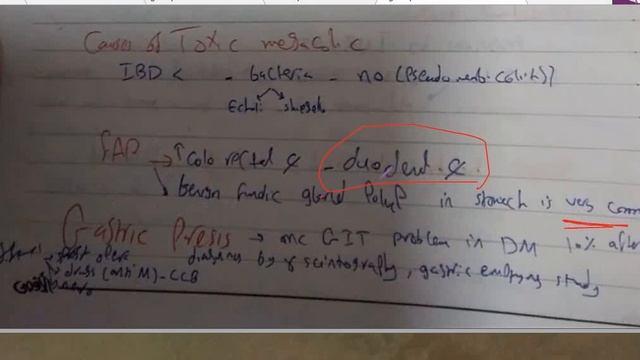 Causes of Toxic megacolic
IBD < - bacteria - no (Pseudomemb. colitis)
Echli shigeh
FAP → ↑ Colo rectal & - duodenal &.
↘ benign fundic gland Polyp in stomach is very comm
Gastric Presis → mc GIT problem in DM 10% after
→ post opera diagnosis by γ scintography, gastric emptying study
→ drugs (anti M) - CCB